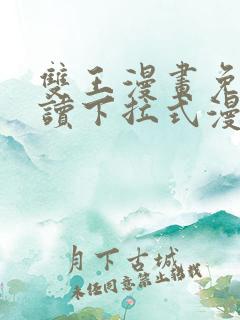 雙王漫畫免
讀下拉式漫
月下古城
未經同意禁止轉載